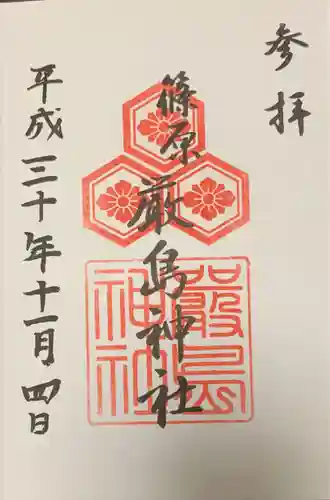 参拝
篠原
厳島神社
平成三十年十一月四日
嚴島
神社